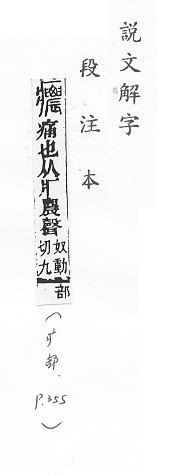 說文解字
段注本
癑痛也从疒農聲奴動切九部
(疒部. P.355)